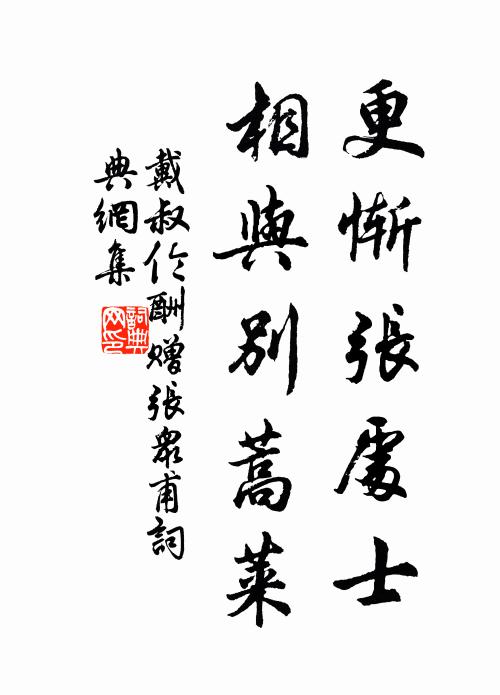 更慚張處士
相與別蒿萊
戴叔倫酬贈張眾甫詞
典網集
詞典
网印